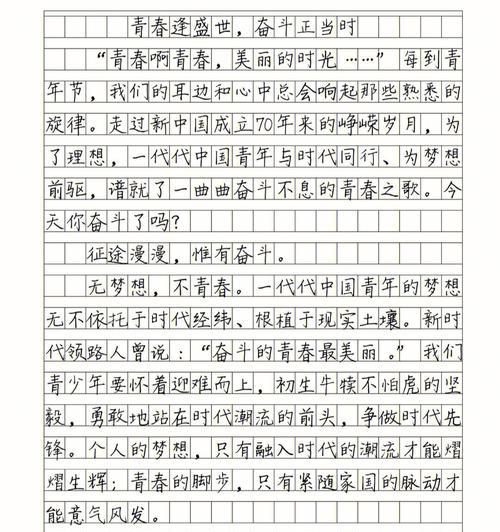 青春逢盛世，奋斗正当时
“青春啊青春，美丽的时光……”每到青
年节，我们的耳边和心中总会响起那些熟悉的
旋律。走过新中国成立70年来的峥嵘岁月，为
了理想，一代代中国青年与时代同行、为梦想
前驱，谱就了一曲曲奋斗不息的青春之歌。今
天你奋斗了吗？
征途漫漫，惟有奋斗。
无梦想，不青春。一代代中国青年的梦想
无不依托于时代经纬、根植于现实土壤。新时
代领路人曾说：“奋斗的青春最美丽。”我们
青少年要怀着迎难而上，初生牛犊不怕虎的坚
毅，勇敢地站在时代潮流的前头，争做时代先
锋。个人的梦想，只有融入时代的潮流才能熠
熠生辉；青春的脚步，只有紧随家国的脉动才
能意气风发。